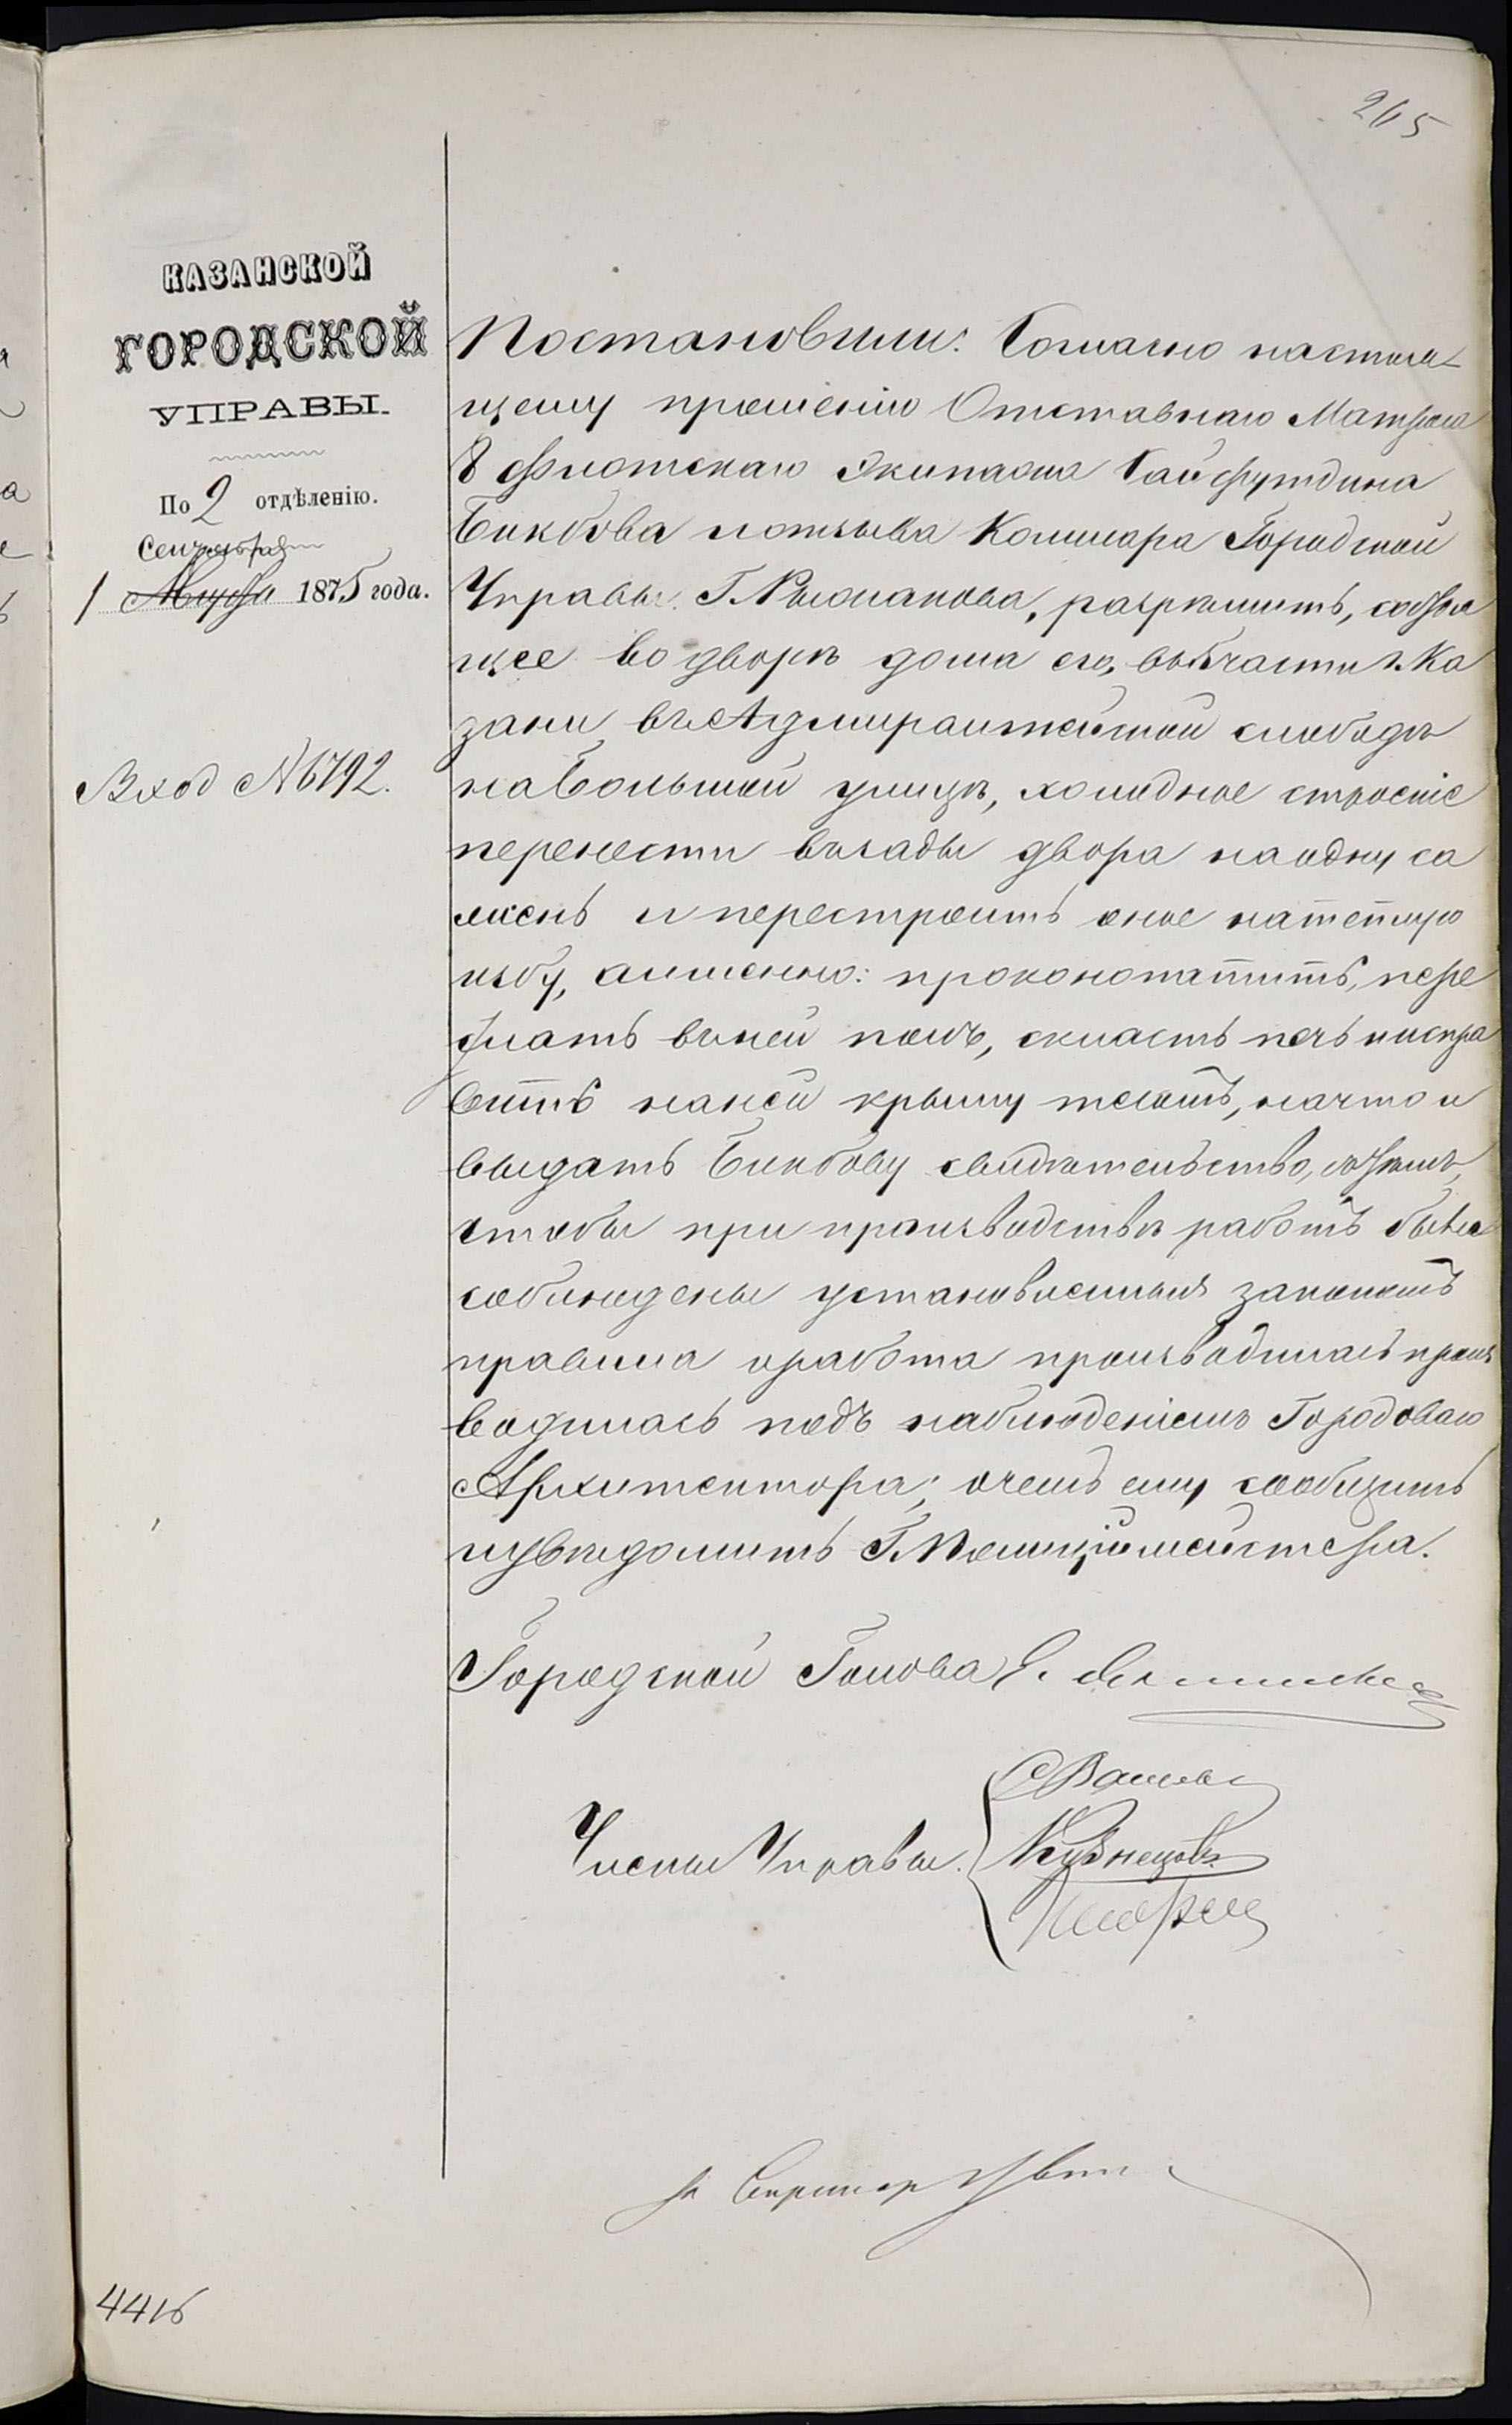 265
КАЗАНСКОЙ
ГОРОДСКОЙ
УПРАВЫ.
По 2 отдѣленію.
Сентября
1 Августа 1875 года.
Вход №6792.
Постановили: Согласно настоя-
щему прошенію Отставнаго Матроса
8 флотскаго Экипажа Сайфутдина
Бикбова и отзыва Коммисара Городской
Управы Г. Рыжанова, разрѣшить,
щее во дворѣ дома его, въ 6 части г. Ка
зани въ Адмиралтейской слободѣ
на Большой улицѣ, холодное строеніе
перенести въ зады двора на одну са
жень и перестроить оное на теплую
избу, а именно: проконопатить, пере
слать въ ней полъ, скласть печь и испра
вить на ней крышу тесомъ, на что и
выдать Бикбову свидѣтельство, съ тѣмъ,
чтобы при производствѣ работъ были
соблюдены установленныя закономъ
правила и работа производилась произ
водилась подъ наблюденіемъ Городоваго
Архитектора; о чемъ ему сообщить
и увѣдомить Г. Полиціймейстера.
Городской Голова Е.
Члены Управы.
Кузнецовъ
Секретарь
4416